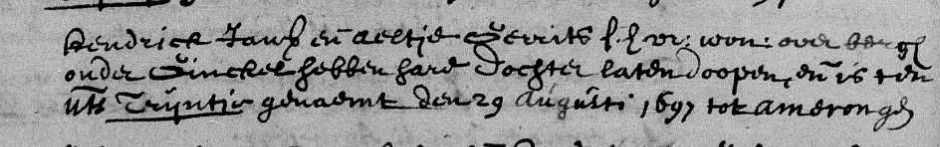 Hendrick Jansz en̄ aeltie Gerrits s. h. vr: won: over bergh
onder Ginckel hebben hare Dochter laten Doopen, en̄ is
Trijntie genaemt den 29 Augusti 1697 tot amerongen